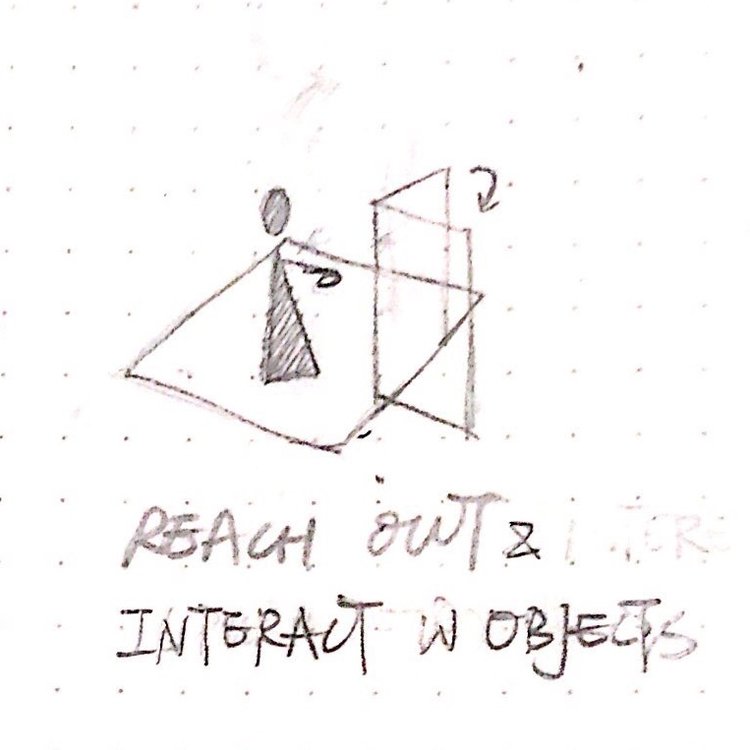 REACH OUT &
INTERACT W OBJECTS